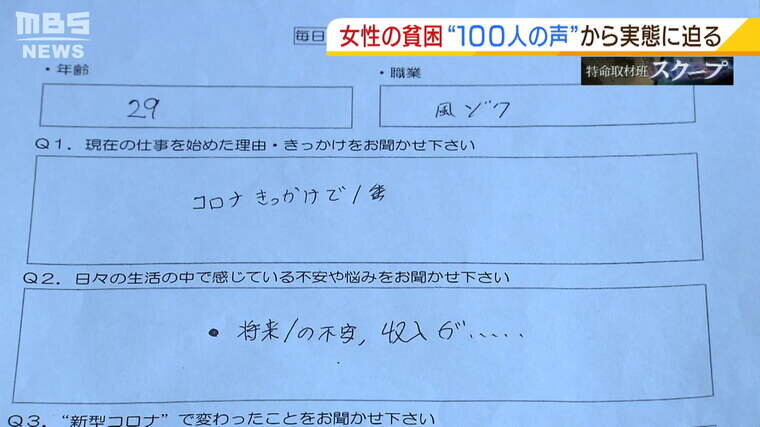 MBS
NEWS
女性の貧困 “100人の声”から実態に迫る
特命取材班 スクープ
毎日
・年齢
・職業
29
風ゾク
Q1. 現在の仕事を始めた理由・きっかけをお聞かせ下さい
コロナきっかけで
Q2. 日々の生活の中で感じている不安や悩みをお聞かせ下さい
• 将来への不安, 収入が.....
Q3. “新型コロナ”で変わったことをお聞かせ下さい